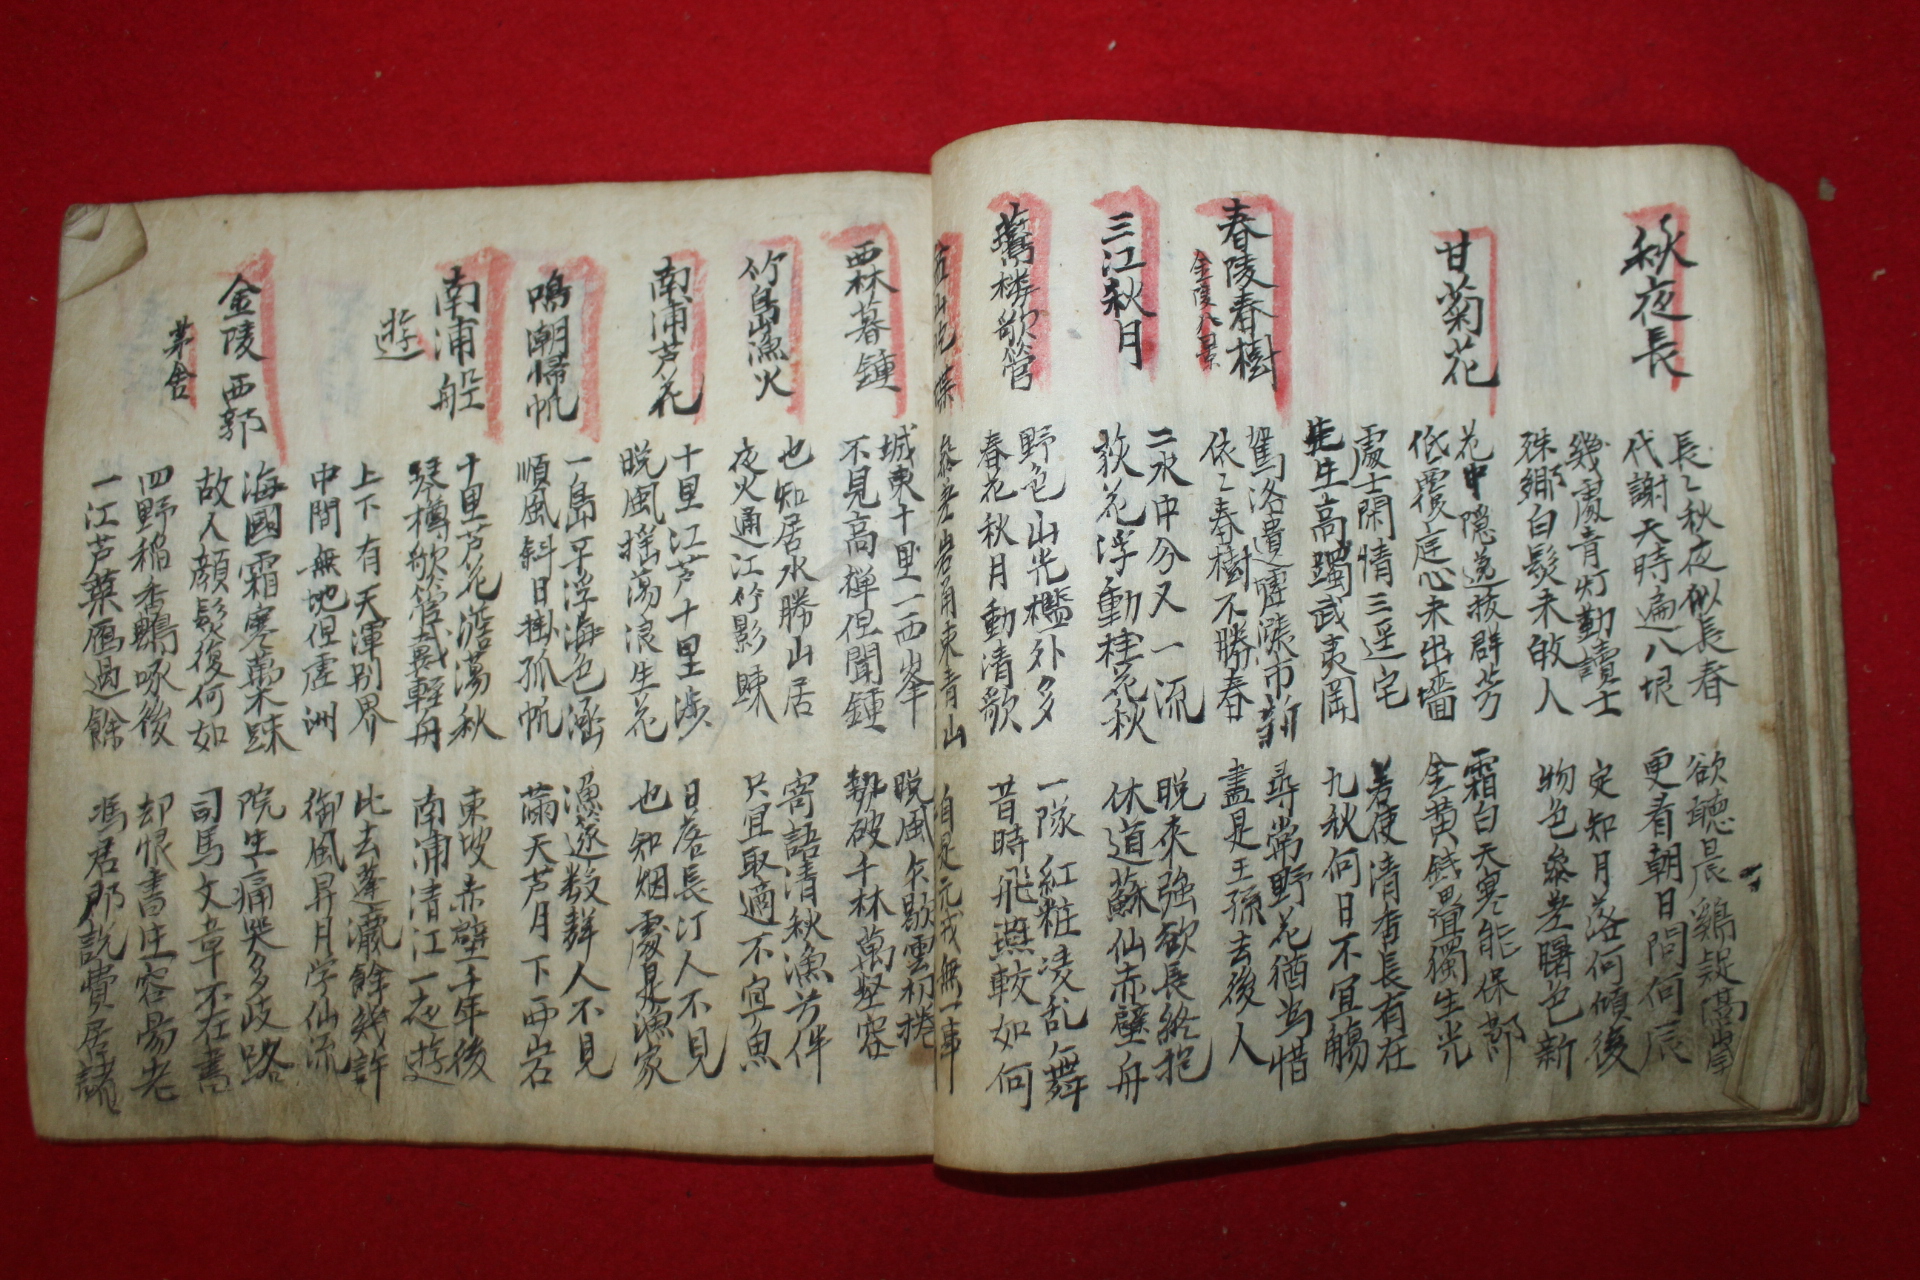 秋夜長
長〻秋夜似長春
欲聽晨鷄疑高峯
代謝天時遍八垠
更看朝日問何辰
幾處青灯勤讀士
定知月落何傾後
殊鄉白髮未敀人
物色參差曙色新
甘菊花
花中隱逸拔群芳
霜白天寒能保
低覆庭心未出墻
金黃錢疊獨生光
處士閑情三逕宅
若使清香長有在
先生高躅武夷岡
九秋何日不宜觴
春陵春樹
金陵八景
駕洛遺墟漲市新
尋常野花猶為惜
依〻春樹不勝春
盡是王孫去後人
三江秋月
二水中分又一流
晚來強欲長終抱
荻花浮動桂花秋
休道蘇仙赤壁舟
鷰楼歌管
野色山光檻外多
一隊紅粧凌乱舞
春花秋月動清歌
昔時飛燕較如何
西林暮鍾
城東十里一西峯
晚風欠歇雲初捲
不見高禅但聞鍾
破千林萬壑容
竹島漁火
也知居水勝山居
寄語清秋漁父伴
夜火通江竹影踈
只宜取適不宜魚
南浦芦花
十里江芦十里涉
日落長汀人不見
晚風搖蕩浪生花
也知烟處是漁家
鳴潮帰帆
一島平浮海色涵
漁邃数聲人不見
順風斜日掛孤帆
滿天芦月下西岩
南浦船遊
十里芦花漾蕩秋
東坡赤壁千年後
琴樽歌管載輕舟
南浦清江一夜遊
上下有天渾別界
比去蓬瀛餘幾許
中間無地但虛洲
御風昇月学仙流
金陵西郭茅舍
海國霜寒葉踈
院生痛哭多歧路
故人顔髮復何如
司馬文章不在書
四野稻香鷗啄後
却恨書生容昜老
一江芦葉鴈過餘
馮君郎說費居諸